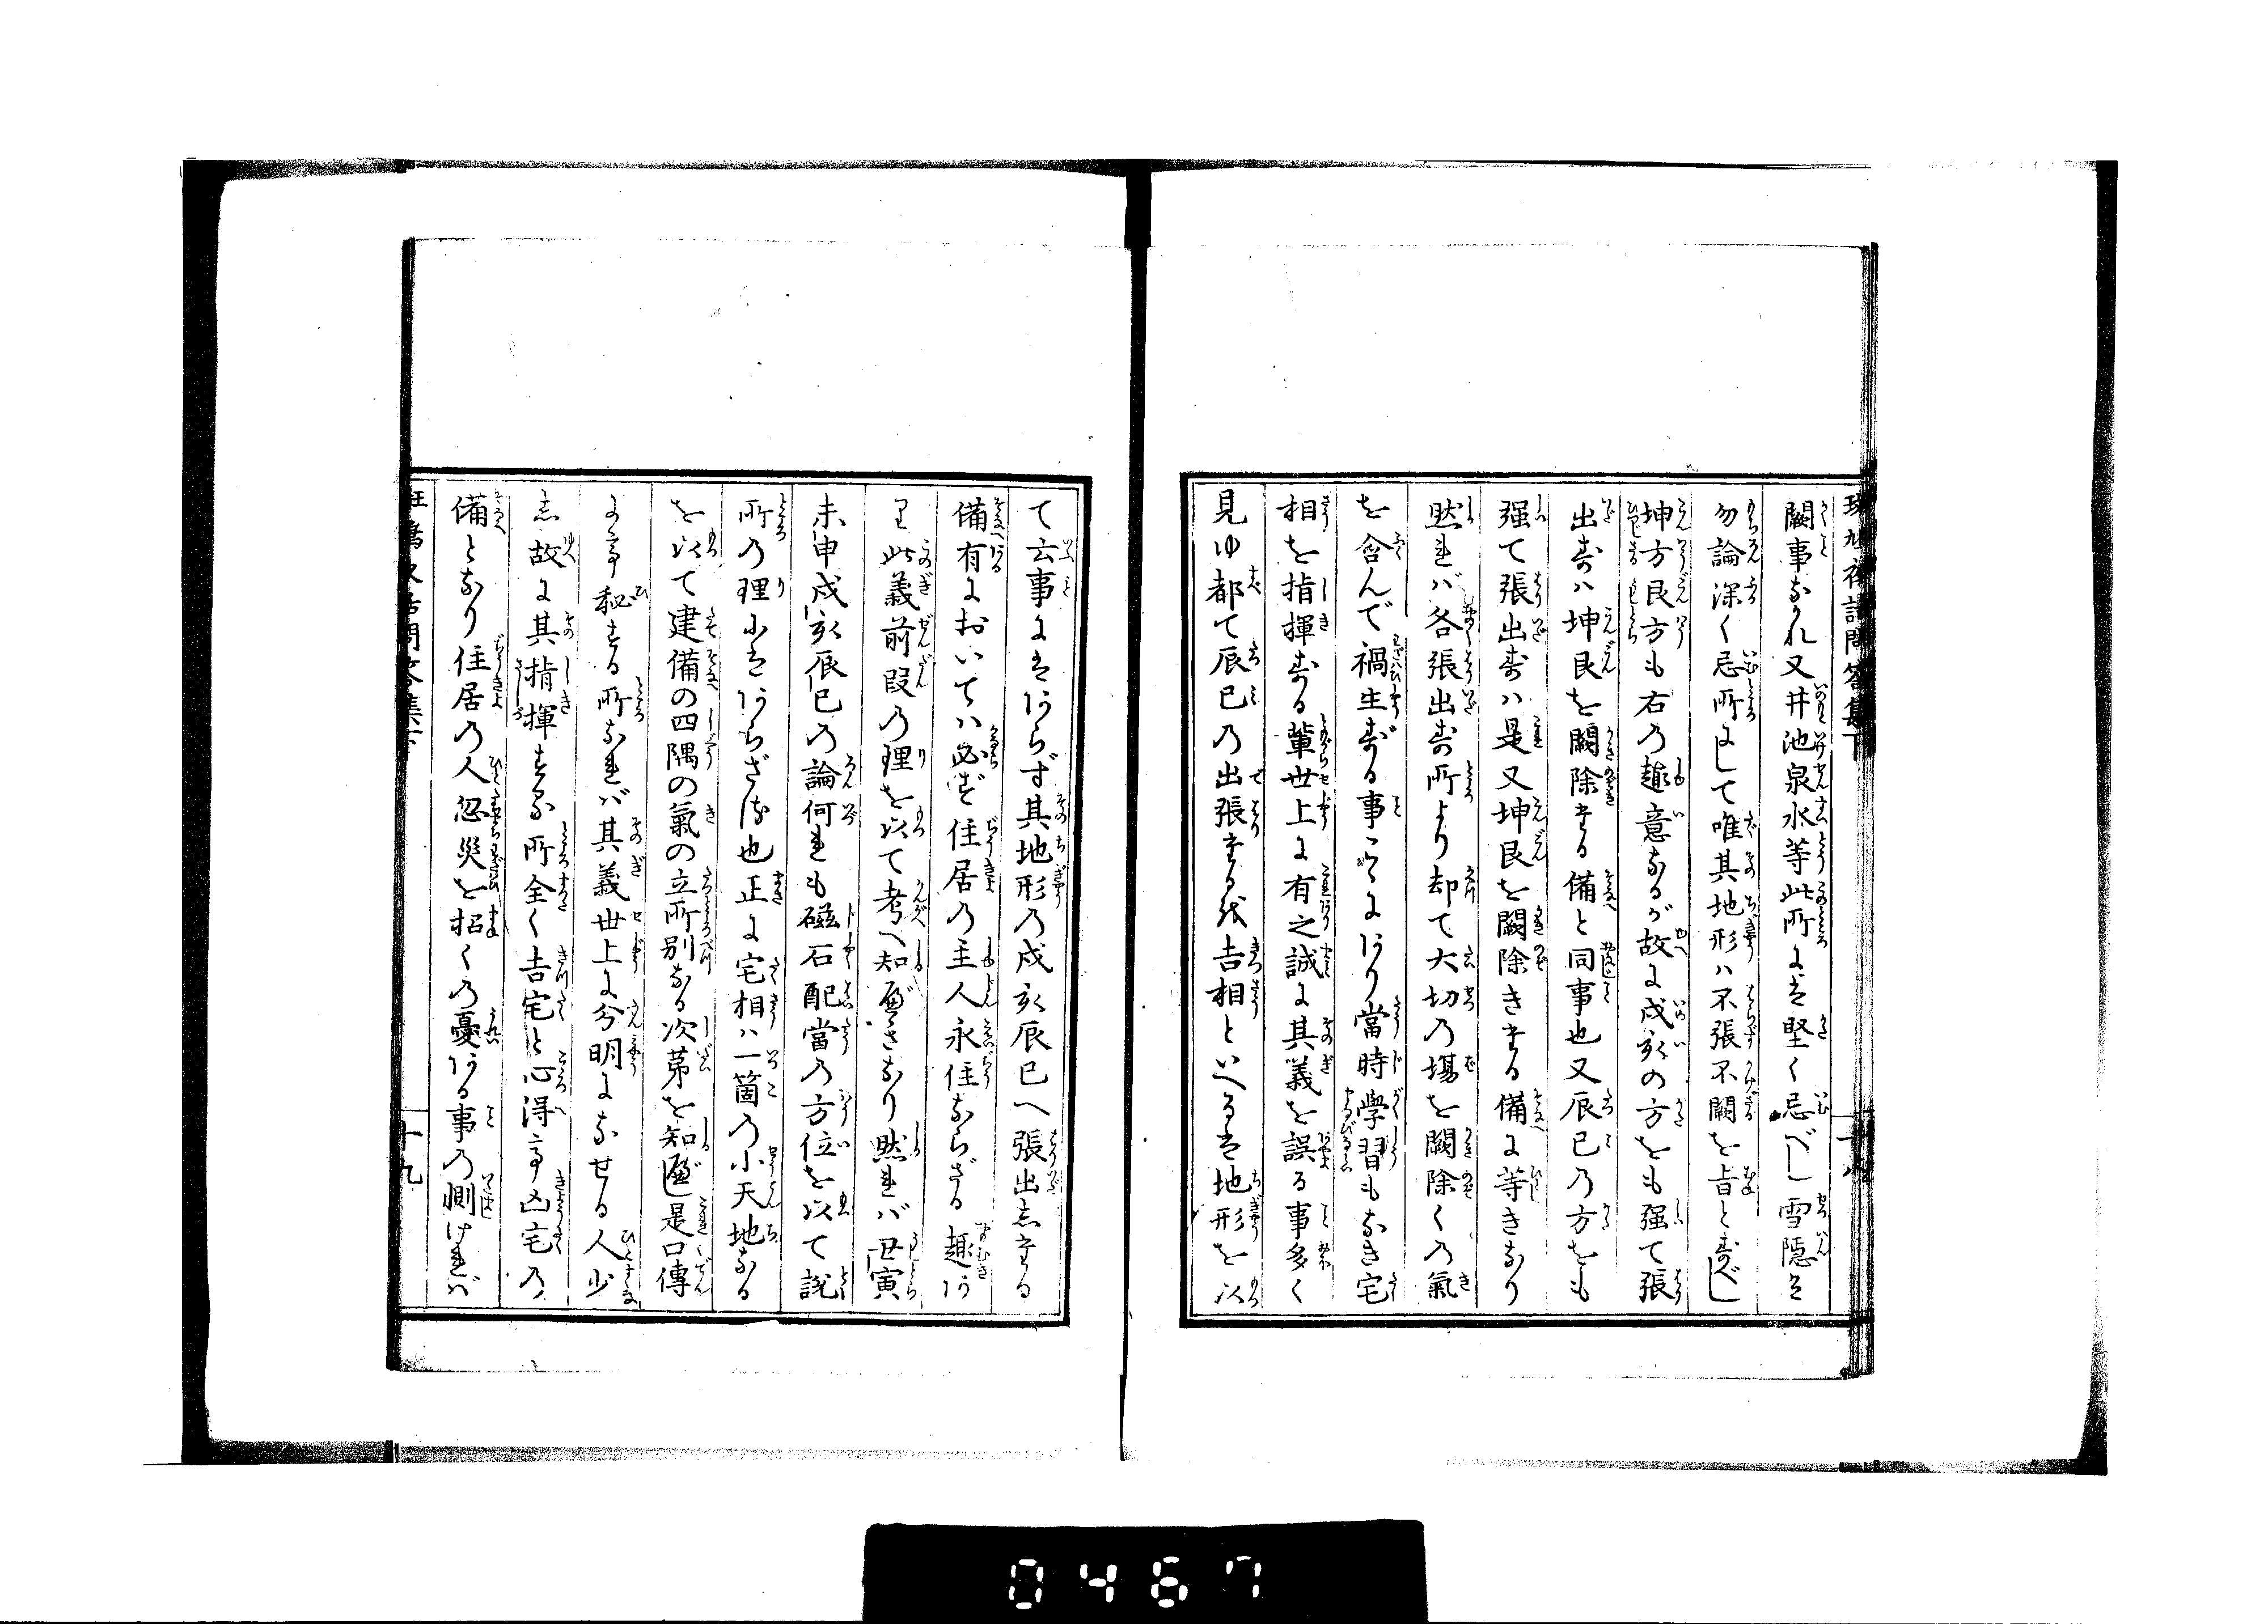 闕事なかれ又井池泉水等此所には堅く忌べし雪隠は
勿論深く忌所にして唯其地形ハ不張不闕を旨とすべし
坤方艮方も右の趣意なるが故に戌亥の方をも强て張
出すハ坤艮を闕除する備と同事也又辰巳の方をも
强て張出すハ是又坤艮を闕除きする備に等きなり
然れバ各張出す所より却て大切の場を闕除くの氣
を含んで禍生ずる事こゝにあり當時學習もなき宅
相を指揮する輩世上に有之誠に其義を誤る事多く
見ゆ都て辰巳の出張するを吉相といへるは地形を以
て云事にはあらず其地形の戌亥辰巳へ張出したる
備有においてハ必ず住居の主人永住ならざる趣あ
り此義前段の理を以て考へ知べきなり然れバ丑寅
未申戌亥辰巳の論何れも磁石配當の方位を以て説
所の理にはあらざる也正に宅相ハ一箇の小天地なる
を以て建備の四隅の氣の立所別なる次第を知べし是口傳
に事秘する所なれバ其義世上に分明になせる人少
し故に其指揮する所全く吉宅と心得事凶宅の
備となり住居の人忽災を招くの憂ある事の惻けれバ
十九
0467